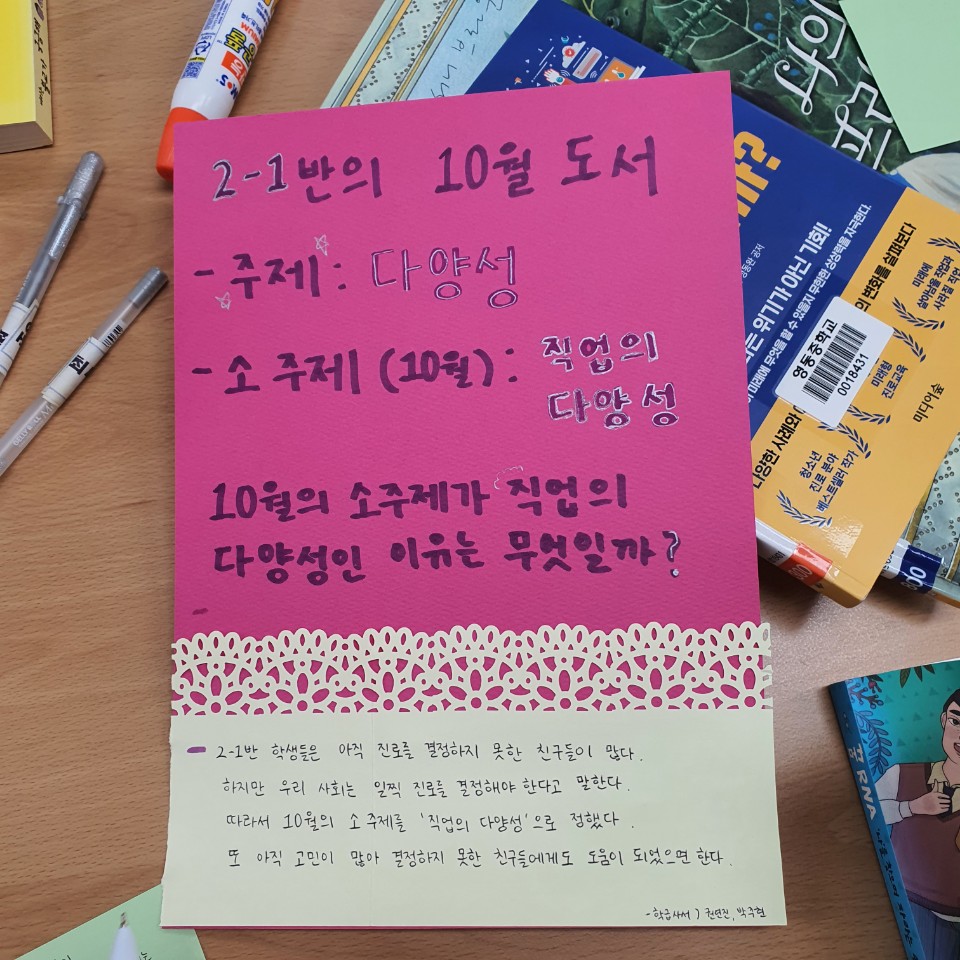 2-1반의 10월 도서
- 주제 : 다양성
- 소주제 (10월) : 직업의
다양성
10월의 소주제가 직업의
다양성인 이유는 무엇일까?
- 2-1반 학생들은 아직 진로를 결정하지 못한 친구들이 많다.
하지만 우리 사회는 일찍 진로를 결정해야 한다고 말한다.
따라서 10월의 소주제를 '직업의 다양성'으로 정했다.
또 아직 고민이 많아 결정하지 못한 친구들에게도 도움이 되었으면 한다.
-학급사서 ) 권연진, 박주현
나의
위기가 아닌 기회!
미래에 무엇을 할 수 있을지 무한한 상상력을 자극한다.
변화를 살펴보다
영동중학교
0018431
미래에
살아남을 직업과
사라질 직업
미래형
진로교육
청소년
진로 분야
베스트셀러 작가
미디어숲
800
RNA